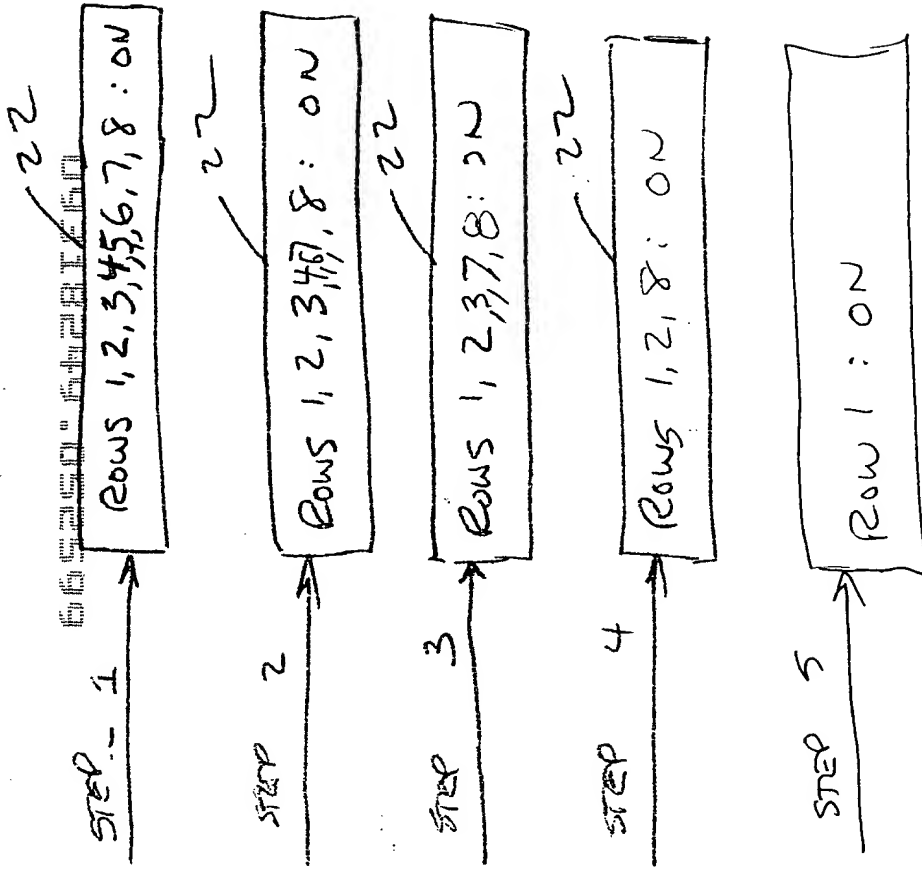 22
STEP 1
Rows 1, 2, 3, 4, 5, 6, 7, 8 : ON
22
STEP 2
Rows 1, 2, 3, 4, 6, 7, 8 : ON
22
STEP 3
Rows 1, 2, 3, 7, 8 : ON
22
STEP 4
Rows 1, 2, 8 : ON
STEP 5
Row 1 : ON